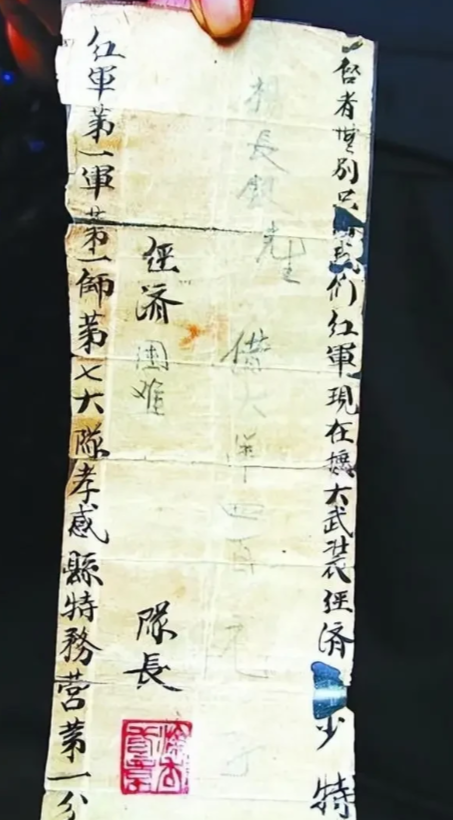 啓者世别们红軍現在擴大武装經濟少特
楊長銀先生 借大洋四百元
經濟困难 隊長
红軍第一軍第一師第七大隊孝感縣特務营第一分